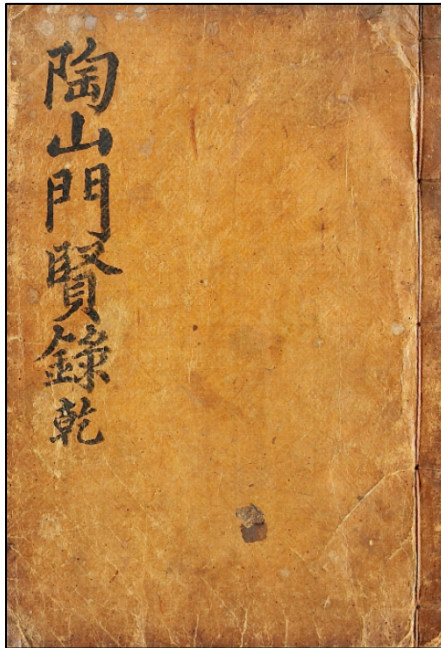 陶山門賢錄 乾